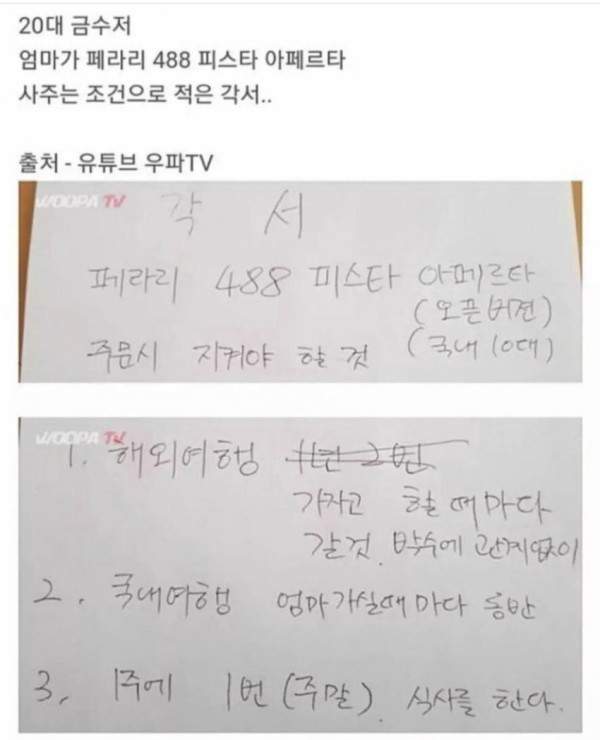 20대 금수저
엄마가 페라리 488 피스타 아페르타
사주는 조건으로 적은 각서..
출처 - 유튜브 우파TV
WOOPA TV
각 서
페라리 488 피스타 아페르타
(오픈버젼)
주문시 지켜야 할 것 (국내 10대)
WOOPA TV
1. 해외여행 1년 2번
가자고 할때마다
갈것. 박수에 관계없이
2. 국내여행 엄마가실때마다 동반
3. 1주에 1번 (주말). 식사를 한다.